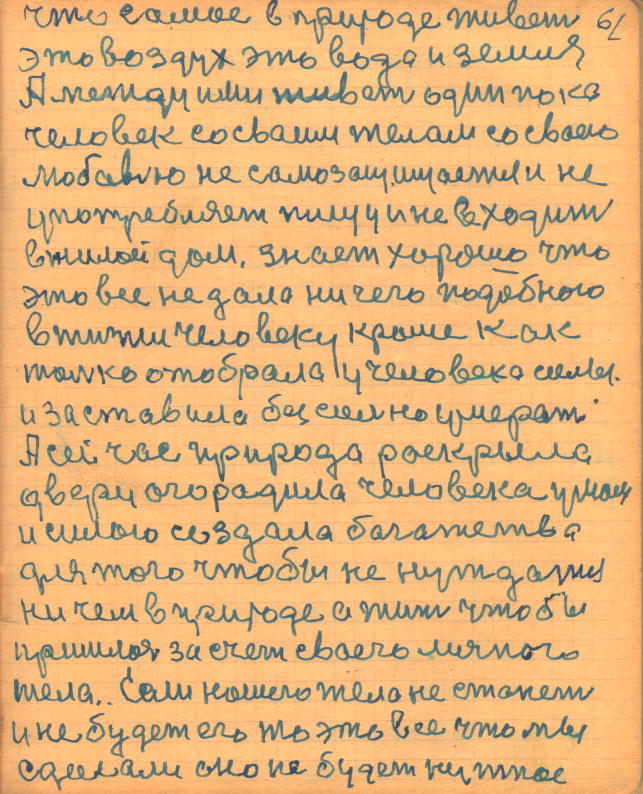 что самое в природе живет 61
это воздух это вода и земля
А между ими живет один пока
человек со сваим телам со сваею
любовию не самозащищается и не
употребляет пищу и не входит
в жилой дом, знает хорошо что
это все не дала ничего подобного
в жизни человеку кроме как
только отобрала у человека силы.
и заставила безсильно умерать
А сейчас природа раскрыла
двери огорадила человека умом
и силою создала багатетва
для того чтобы не нуждатся
ни чем в природе а жит чтобы
пришлоя за счет сваего личного
тела.. Если нашего тела не станет
и не будет его то это все что мы
сделали оно не будет нужное